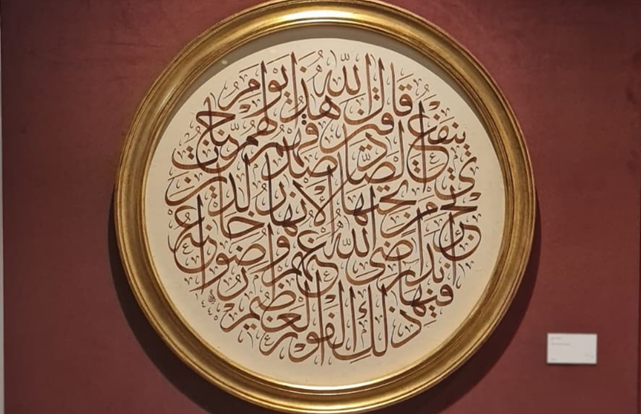 قال الله هذا يوم
ينفع الصادقين صدقهم لهم جنات
تجري من تحتها الأنهار خالدين
فيها أبدا رضي الله عنهم ورضوا عنه
ذلك الفوز العظيم